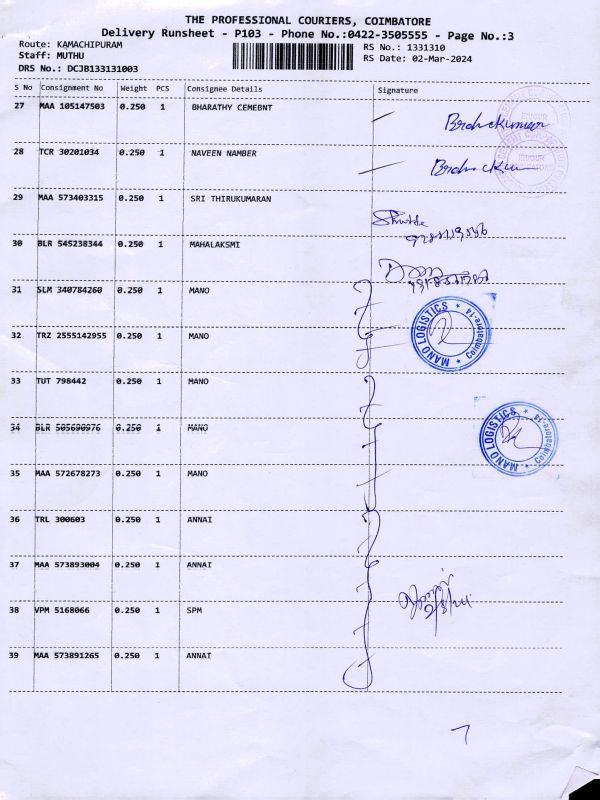 THE PROFESSIONAL COURIERS, COIMBATORE
Delivery Runsheet - P103 - Phone No.:0422-3505555 - Page No.:3
Route: KAMACHIPURAM
RS No.: 1331310
Staff: MUTHU
RS Date: 02-Mar-2024
DRS No.: DCJB133131003
S No Consignment No Weight PCS Consignee Details Signature
27 MAA 105147503 0.250 1 BHARATHY CEMEBNT
28 TCR 30201034 0.250 1 NAVEEN NAMBER
29 MAA 573403315 0.250 1 SRI THIRUKUMARAN
30 BLR 545238344 0.250 1 MAHALAKSMI
31 SLM 340784260 0.250 1 MANO
MANO LOGISTICS * Coimbatore-14 *
32 TRZ 2555142955 0.250 1 MANO
33 TUT 798442 0.250 1 MANO
34 BLR 505690976 0.250 1 MANO
MANO LOGISTICS * Coimbatore-14 *
35 MAA 572678273 0.250 1 MANO
36 TRL 300603 0.250 1 ANNAI
37 MAA 573893004 0.250 1 ANNAI
38 VPM 5168066 0.250 1 SPM
39 MAA 573891265 0.250 1 ANNAI
7